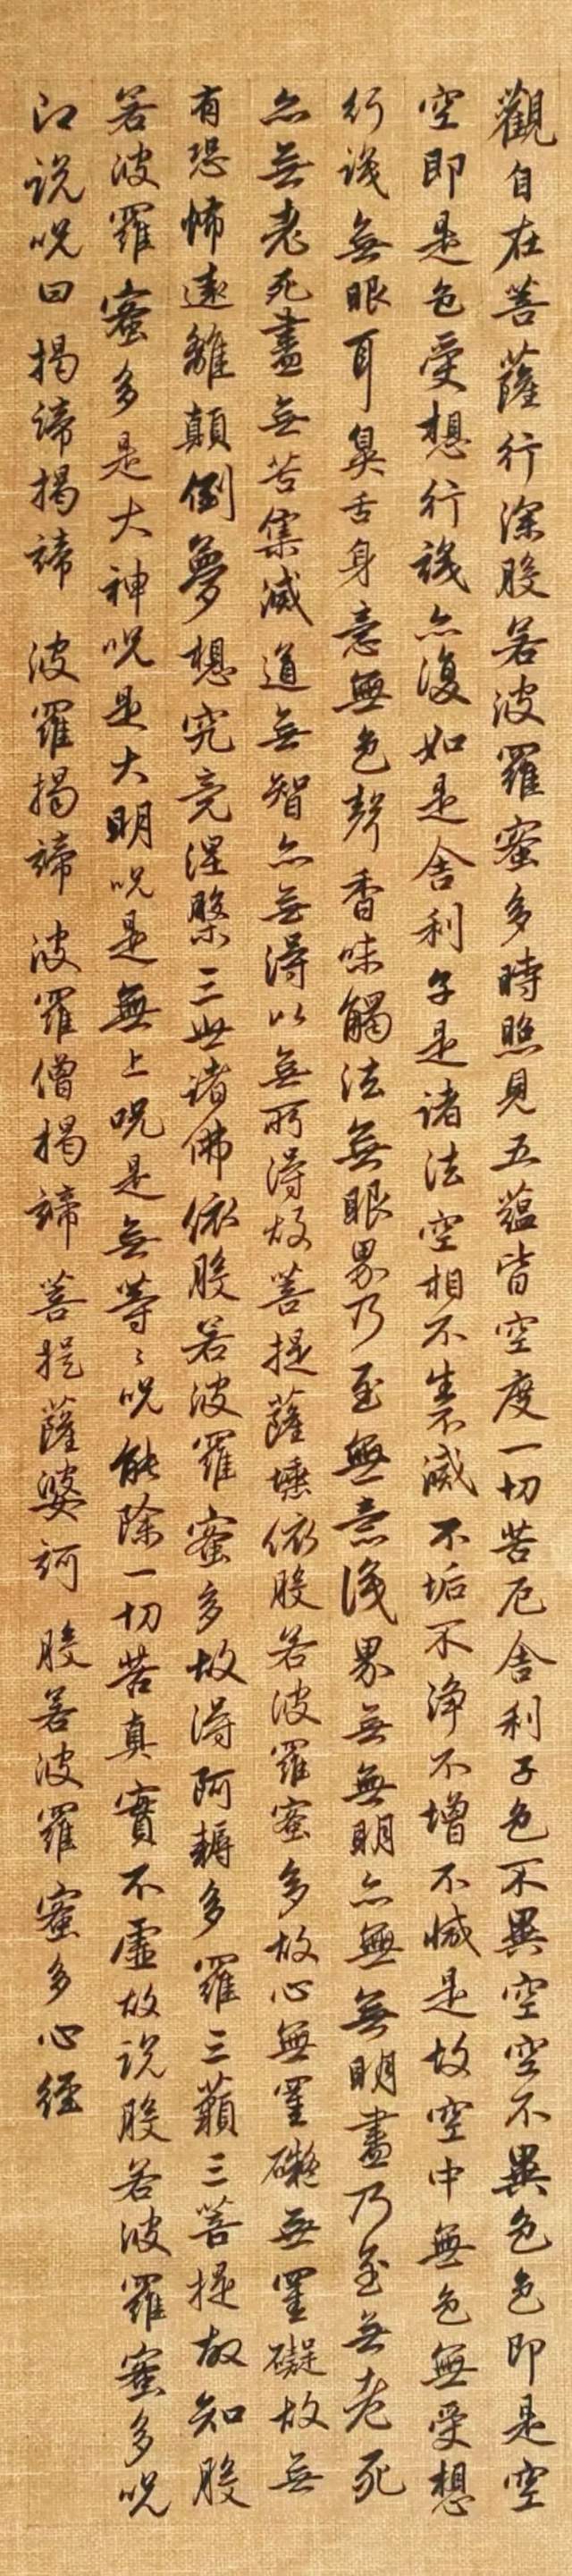 觀自在菩薩行深般若波羅蜜多時照見五蘊皆空度一切苦厄舍利子色不異空空不異色色即是空
空即是色受想行識亦復如是舍利子是诸法空相不生不滅不垢不淨不增不減是故空中無色無受想
行識無眼耳鼻舌身意無色聲香味觸法無眼界乃至無意識界無無明亦無無明盡乃至無老死
亦無老死盡無苦集滅道無智亦無得以無所得故菩提薩埵依般若波羅蜜多故心無罣礙無罣礙故無
有恐怖遠離顛倒夢想究竟涅槃三世诸佛依般若波羅蜜多故得阿耨多羅三藐三菩提故知般
若波羅蜜多是大神呪是大明呪是無上呪是無等〻呪能除一切苦真實不虛故说般若波羅蜜多呪
即说呪曰揭諦揭諦 波羅揭諦 波羅僧揭諦 菩提薩婆訶 般若波羅蜜多心經